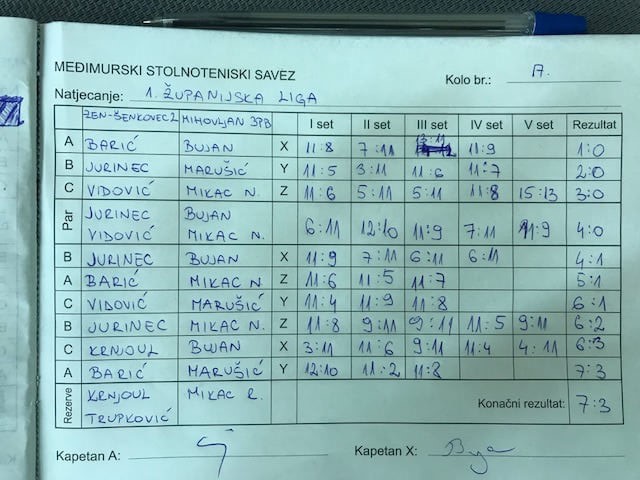 MEĐIMURSKI STOLNOTENISKI SAVEZ
Kolo br.: A.
Natjecanje: 1. ŽUPANIJSKA LIGA
ŽEN-ŠENKOVEC 2 MIHOVLJAN 3PB I set II set III set IV set V set Rezultat
A BARIĆ BUJAN X 11:8 7:11 13:11 11:9 1:0
B JURINEC MARUŠIĆ Y 11:5 3:11 11:6 11:7 2:0
C VIDOVIĆ MIKAC N. Z 11:6 5:11 5:11 11:8 15:13 3:0
Par JURINEC BUJAN
VIDOVIĆ MIKAC N. 6:11 12:10 11:9 7:11 11:9 4:0
B JURINEC BUJAN X 11:9 7:11 6:11 6:11 4:1
A BARIĆ MIKAC N. Z 11:6 11:5 11:7 5:1
C VIDOVIĆ MARUŠIĆ Y 11:4 11:9 11:8 6:1
B JURINEC MIKAC N. Z 11:8 9:11 9:11 11:5 9:11 6:2
C KRNJOUL BUJAN X 3:11 11:6 9:11 11:4 4:11 6:3
A BARIĆ MARUŠIĆ Y 12:10 11:2 11:8 7:3
Rezerve KRNJOUL MIKAC R.
TRUPKOVIĆ Konačni rezultat: 7:3
Kapetan A: Kapetan X: